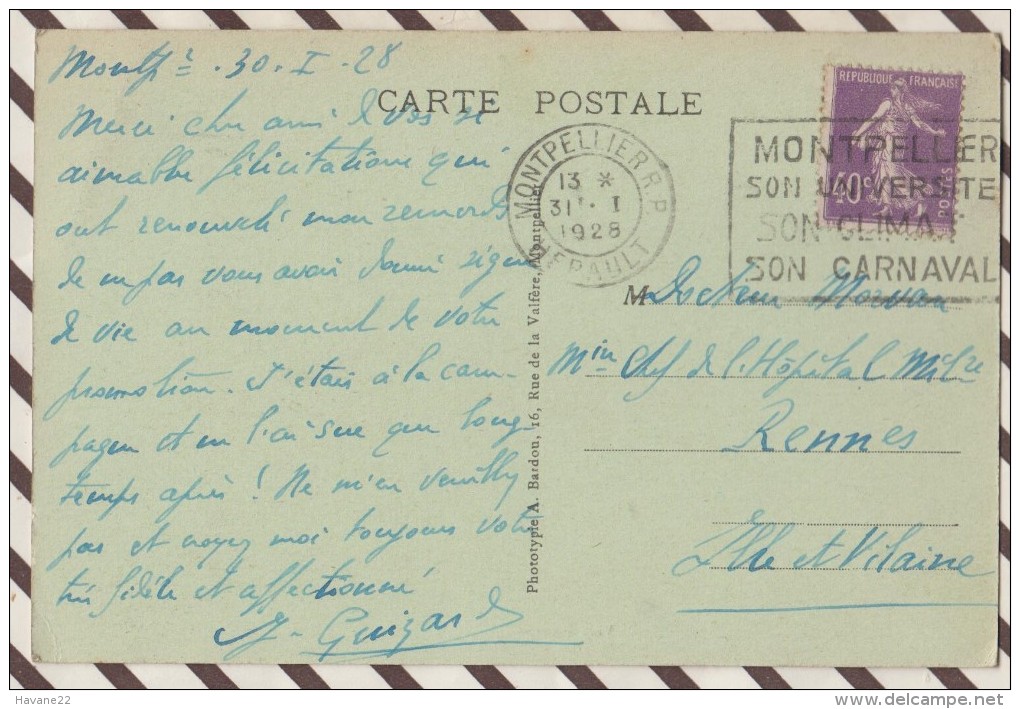 Montpr. 30. I. 28
Merci cher ami de vos si
aimables félicitations qui
ont renouvelé mon remords
de ne pas vous avoir donné signe
de vie au moment de votre
promotion. J'étais à la cam-
pagne et ne l'ai sue que long-
temps après ! Ne m'en veuillez
pas et croyez moi toujours votre
très fidèle et affectionné
J. Guizard
CARTE POSTALE
Phototypie A. Bardou, 16, Rue de la Valfère, Montpellier
MONTPELLIER R.P.
13 *
31 · I
1928
HERAULT
REPUBLIQUE FRANÇAISE
40c
POSTES
MONTPELLIER
SON UNIVERSITE
SON CLIMAT
SON CARNAVAL
M Docteur Morvan
Min Chef de l'Hôpital Milre
Rennes
Ille et Vilaine
Havane22
delcampe.net